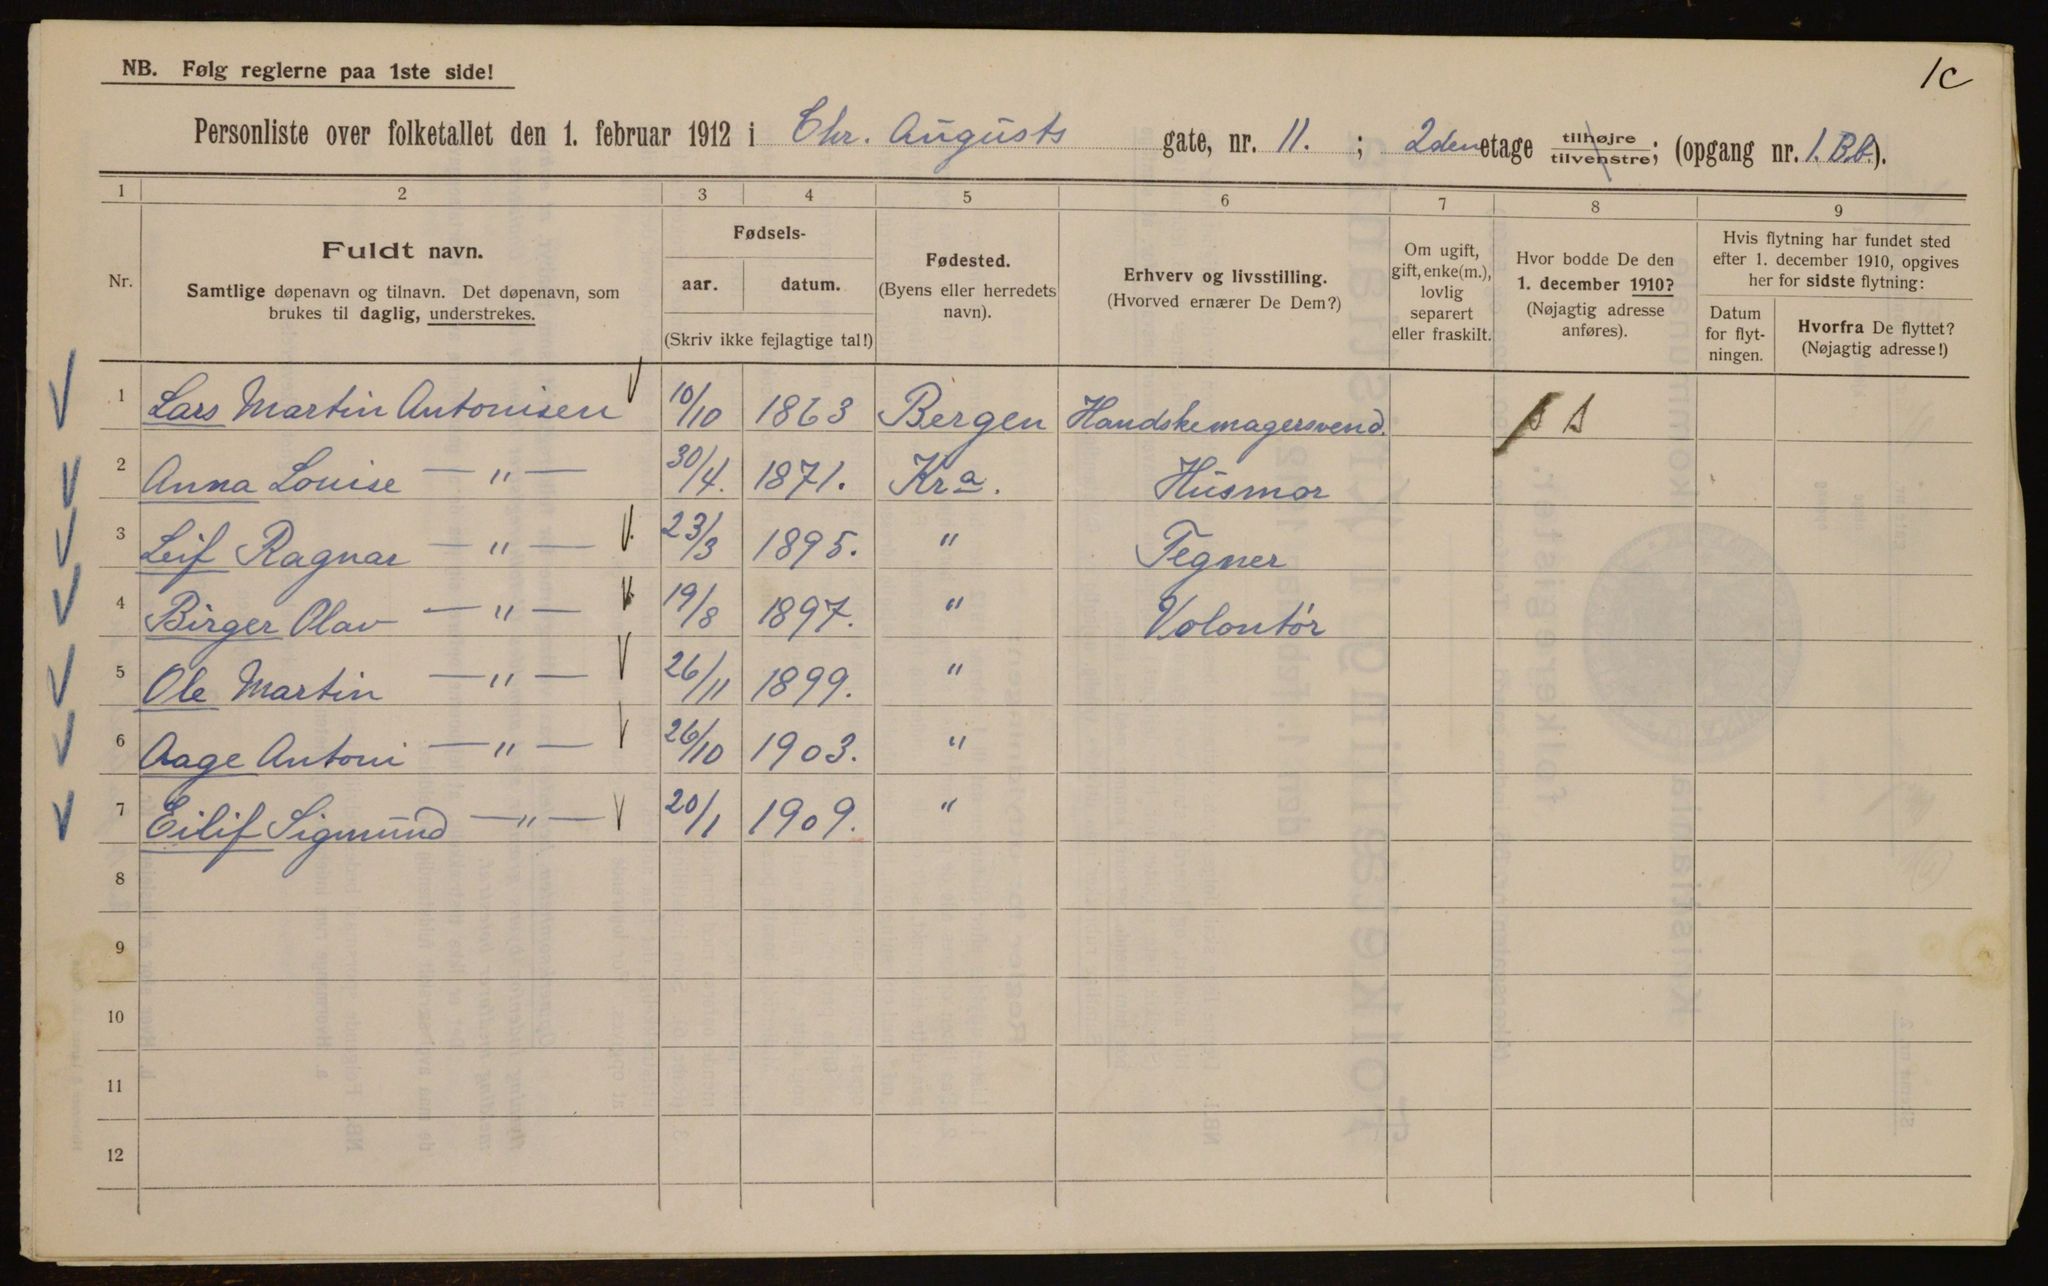 1c
NB. Følg reglerne paa 1ste side!
Personliste over folketallet den 1. februar 1912 i Chr. Augusts gate, nr. 11. ; 2den etage tilhøjre tilvenstre; (opgang nr. 1. B.b.).
1 2 3 4 5 6 7 8 9
Nr.
Fuldt navn.
Samtlige døpenavn og tilnavn. Det døpenavn, som
brukes til daglig, understrekes.
Fødsels-
aar. datum.
(Skriv ikke fejlagtige tal!)
Fødested.
(Byens eller herredets
navn).
Erhverv og livsstilling.
(Hvorved ernærer De Dem?)
Om ugift,
gift, enke(m.),
lovlig
separert
eller fraskilt.
Hvor bodde De den
1. december 1910?
(Nøjagtig adresse
anføres).
Hvis flytning har fundet sted
efter 1. december 1910, opgives
her for sidste flytning:
Datum
for flyt-
ningen.
Hvorfra De flyttet?
(Nøjagtig adresse!)
1 Lars Martin Antonisen 10/10 1863 Bergen Handskemagersvend.
2 Anna Louise — " — 30/4. 1871. Kra. Husmor
3 Leif Ragnar — " — 23/3 1895. " Tegner
4 Birger Olav — " — 19/8 1897. " Volontør
5 Ole Martin — " — 26/11 1899. "
6 Aage Antoni — " — 26/10 1903. "
7 Eilif Sigmund — " — 20/1 1909. "
8
9
10
11
12